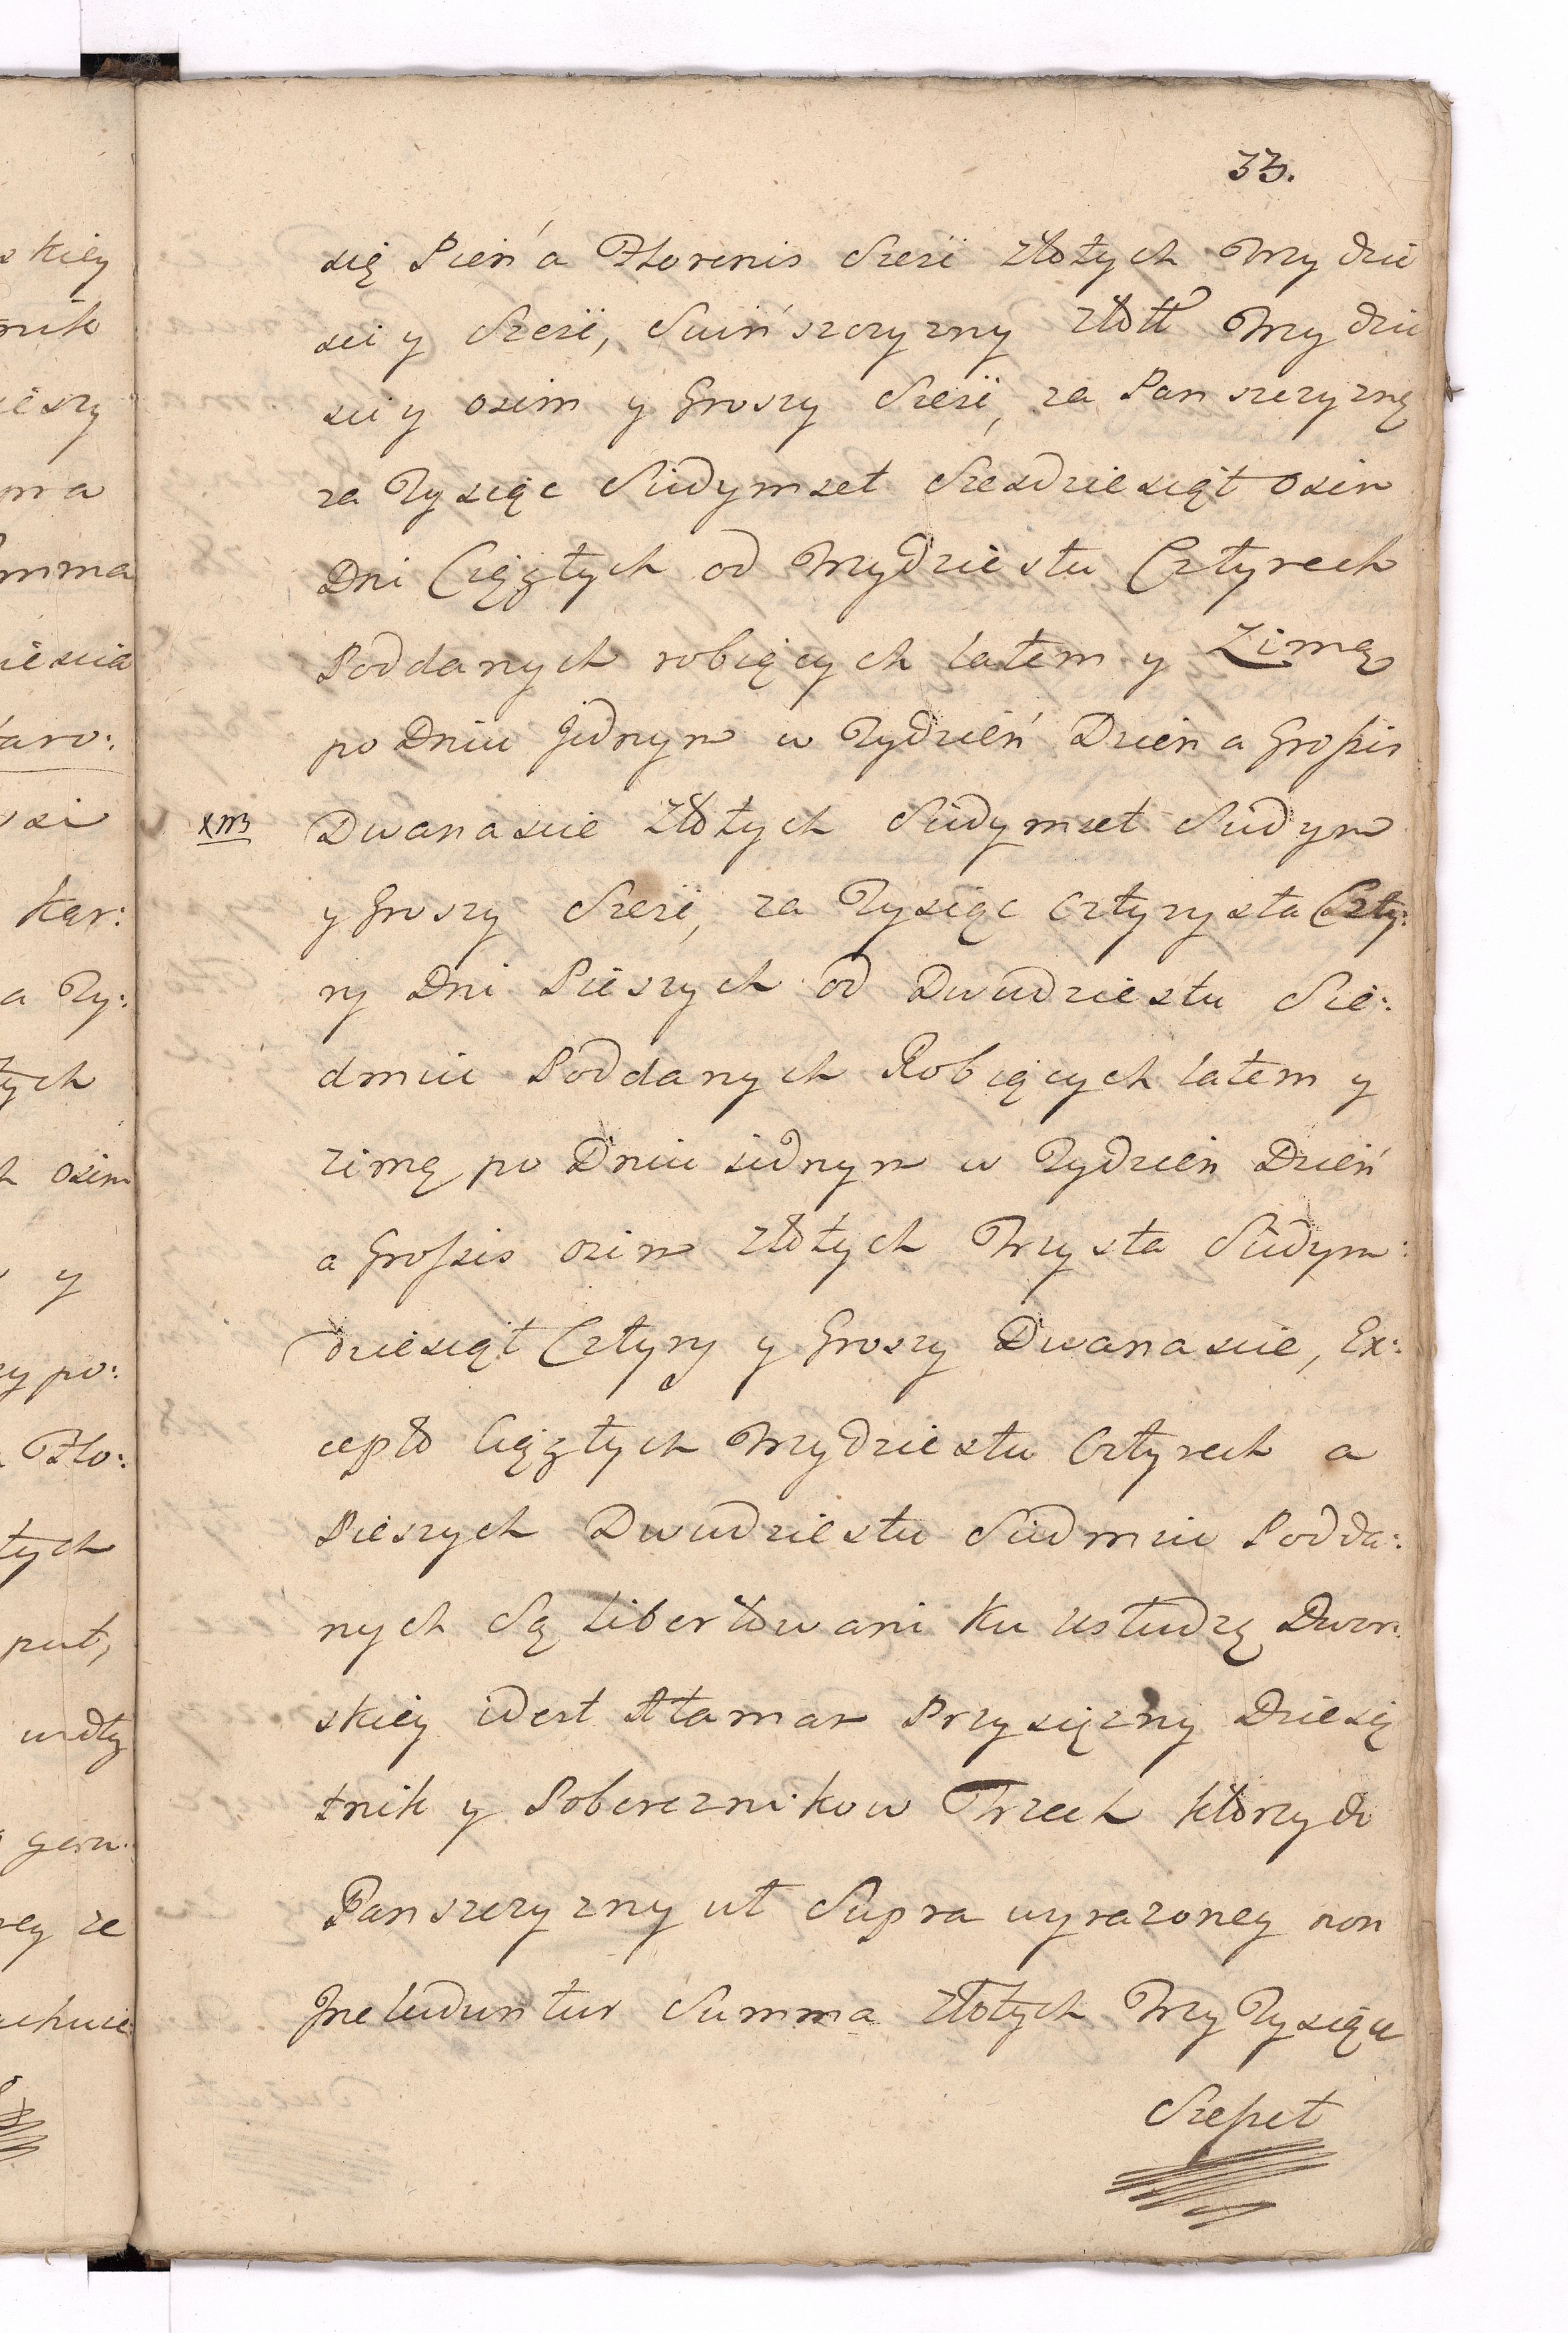 33.
się Pień a Florenis Szesć złotych Trzydzie
sci y Szesć, Swińszczyzny złott Trzydzie
sci y osim y Groszy Szesć, za Panszczyznę
za Tysiąc Siedymset Szesdziesiąt Osim
Dni Ciągłych od Trzydziestu Cztyrech
Poddanych robiących latem y Zimą
po Dniu Jednym w Tydzień Dzień a Grossis
XM3 Dwanascie złotych Siedymset Siedym
y Groszy Szesć, za Tysiąc cztyrysta Czty:
ry Dni Pieszych od Dwudziestu Sie:
dmiu Poddanych Robiących latem y
zimą po Dniu iednym w Tydzień Dzień
a Grossis osim złotych Trzysta Siedym:
dziesiąt Cztyry y Groszy Dwanascie, Ex:
cepto Ciągłych Trzydziestu Cztyrech a
Pieszych Dwudziestu Siedmiu Podda:
nych Są libertowani Ku usłudzę Dwor:
skiey idest Attaman Przysiężny Dziesię
tnik y Pobereznikow Trzech którzy do
Panszczyzny ut Supra wyrazoney non
Jncluduntur Summa złotych Trzy Tysiące
Szesset
skiey
nik
ieszy
mma
iescia
taro:
kar:
a Ty:
tych
osim
y
zy po:
Flo:
tych
put,
ze